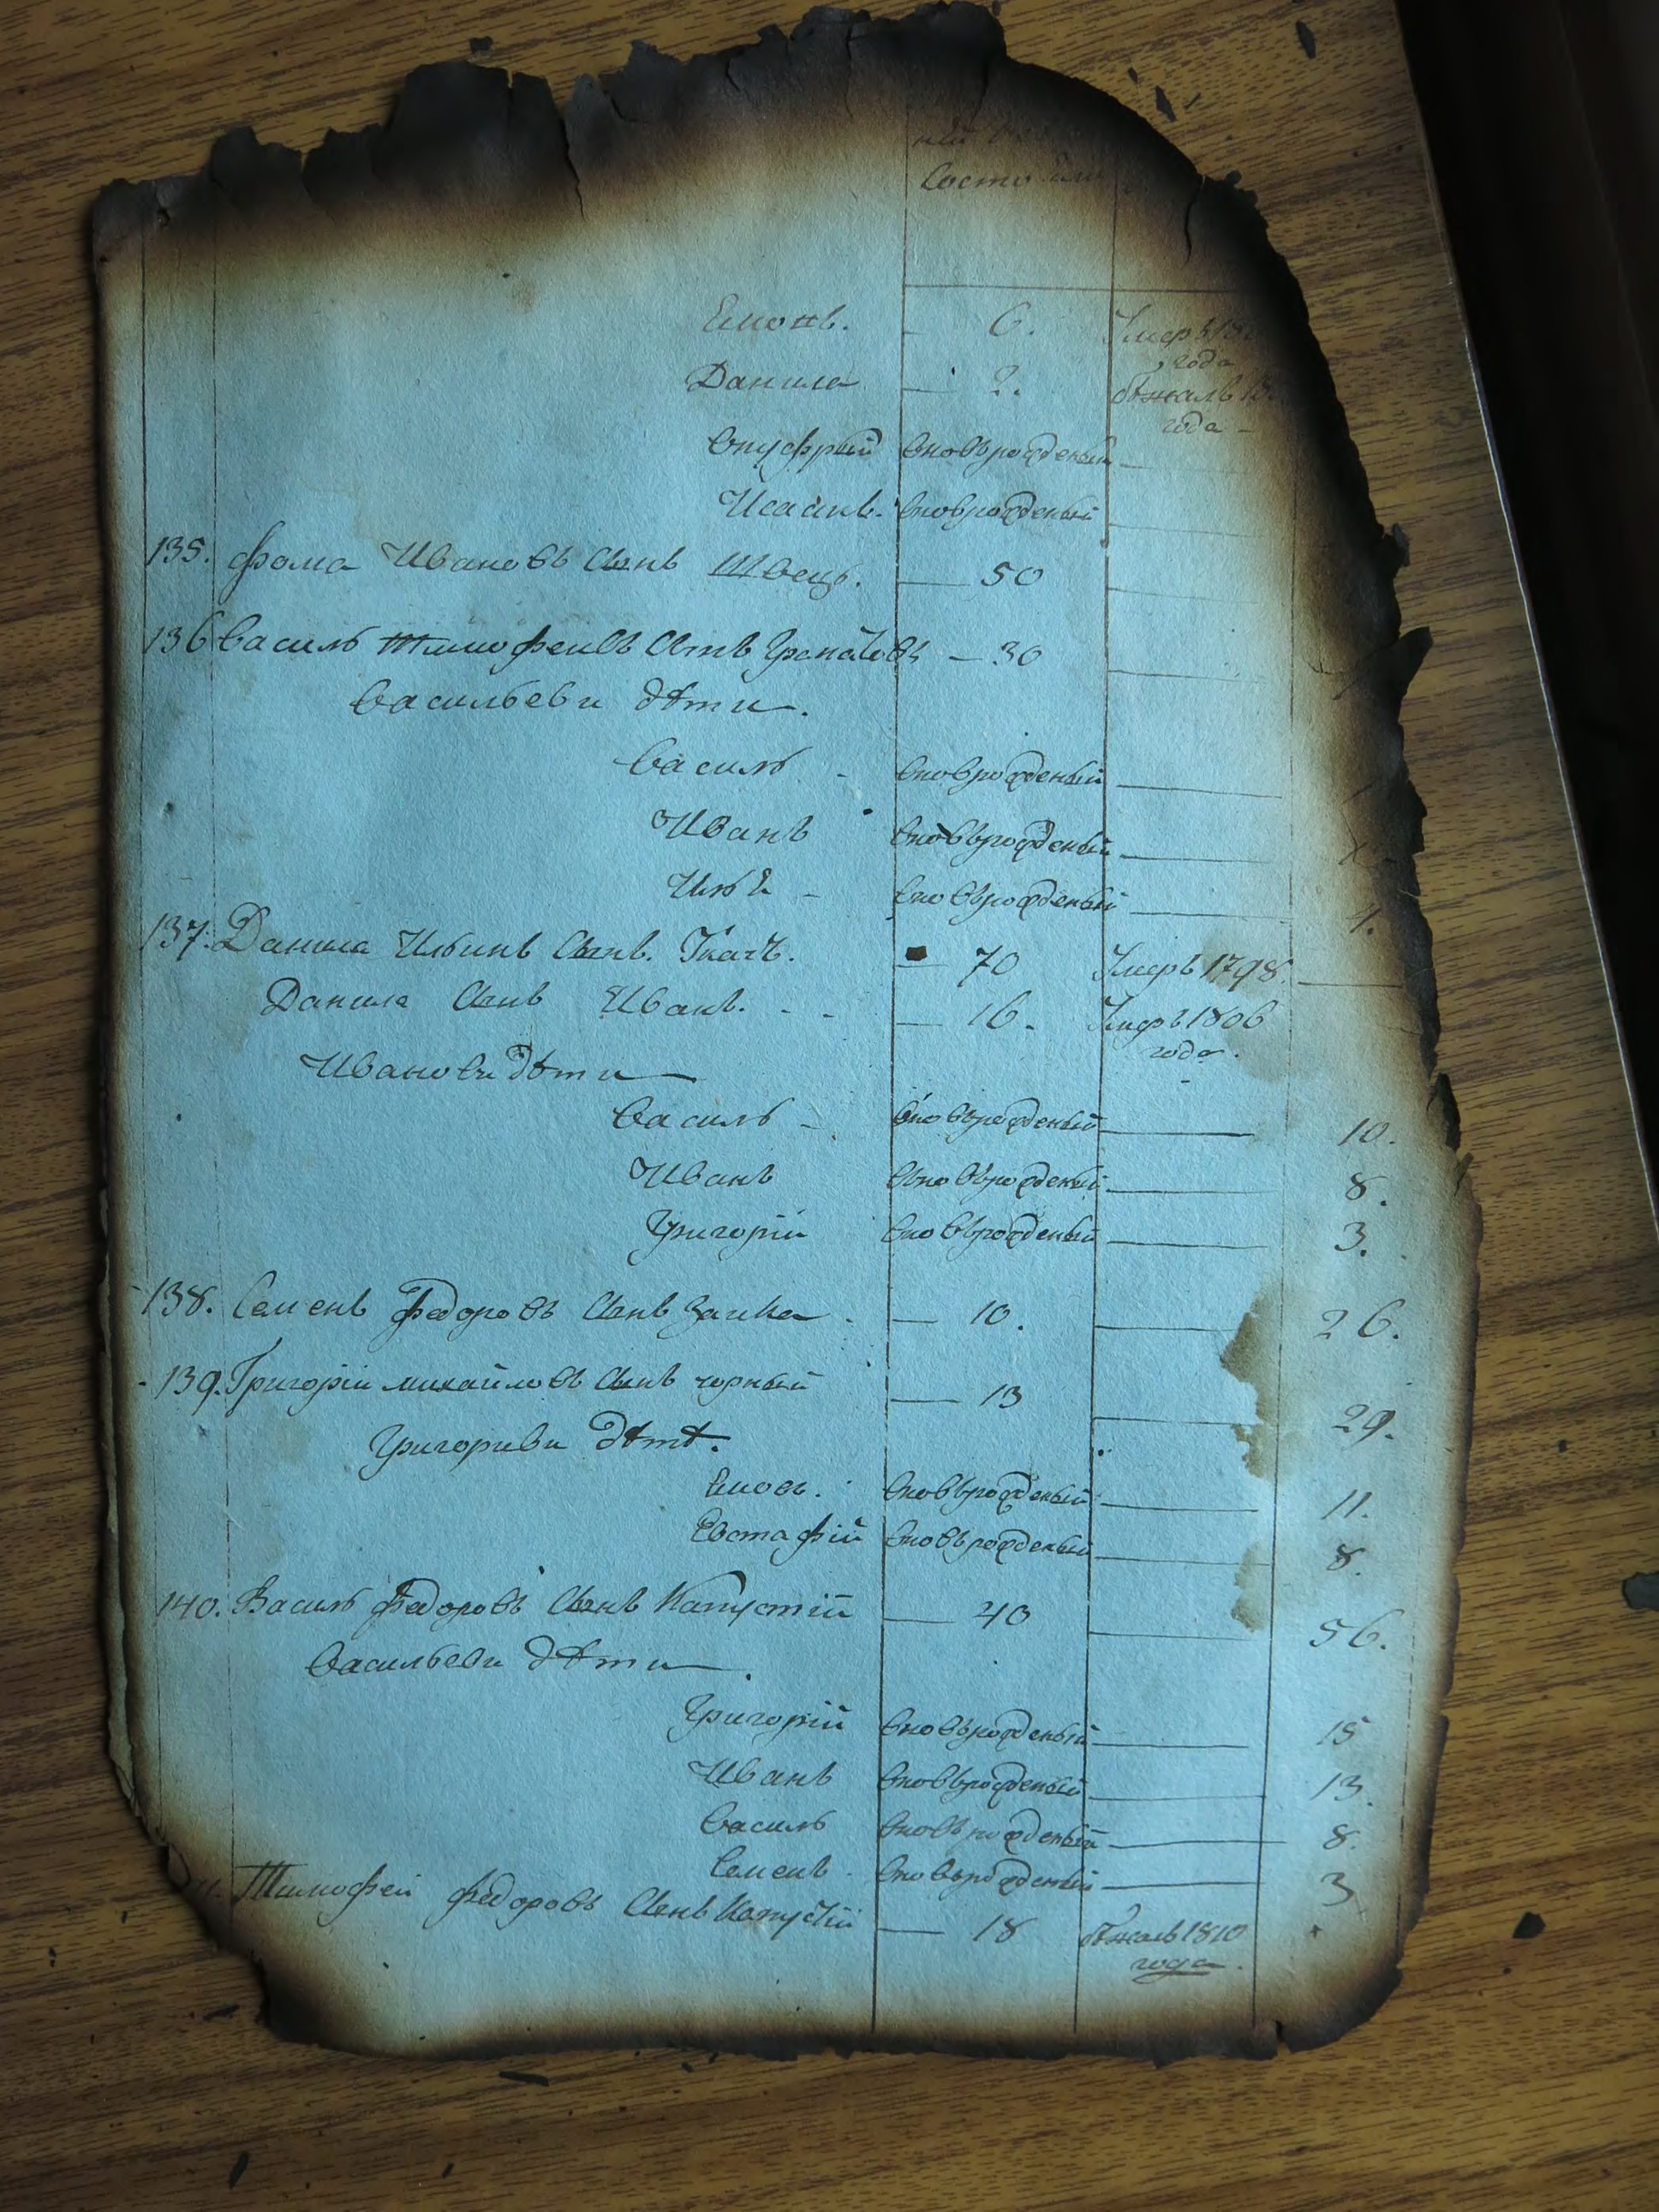 Данила — 2. бѣжалъ
года
года —
Онуфрий вновьрожденый —
Исаакъ. вноврожденый
135. Фома Ивановъ сынъ Швецъ. — 50
136 Василь Тимофеивъ сынъ — 30
Васильеви дѣти.
Василь - вноврожденый —
Иванъ вновьрожденый —
Илья - вновьрожденый — 4.
137. Данила Ильинъ сынъ. Ткачъ. — 70 Умеръ 1798. —
Данила сынъ Иванъ. - - — 16. Умеръ 1806
года.
Иванови дѣти
Василь - вновьрожденый — 10.
Иванъ вновьрожденый — 8.
Григорій вновьрожденый — 3.
138. Семенъ Федоровъ сынъ Заика - — 10. — 26.
139. Григорій михайловъ сынъ чорный — 13 — 29.
Григориви дѣтѣ.
вновьрожденый — 11.
Евстафій вновьрожденый — 8.
140. Василь Федоровъ сынъ Капустій — 40 — 56.
Васильеви дѣти.
Григорій вновьрожденый — 15
Иванъ вновьрожденый — 13.
Василь вновьрожденый — 8.
Семенъ - вновьрожденый — 3
Тимофей Федоровъ сынъ Капустій — 18 бѣжалъ 1810
года.